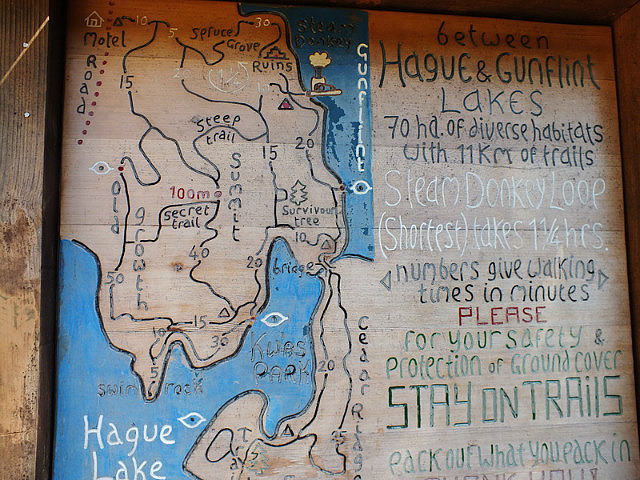 between
Hague & Gunflint
LAKES
70 ha. of diverse habitats
with 11 Km of trails
Steam Donkey Loop
(Shortest) takes 1 1/4 hrs.
numbers give walking
times in minutes
PLEASE
for your safety &
Protection of Ground cover
STAY ON TRAILS
pack out what you pack in
THANK YOU!
Motel
Road
10
5
Spruce
Grove
30
Ruins
Steam
Donkey
GUNFLINT
15
Steep
trail
15
20
Summit
100m
Secret
trail
Survivour
tree
10
Old
growth
40
20
bridge
50
15
10
30
5
Swim rock
Kwes
PARK
20
Cedar Ridge
15
Hague
Lake